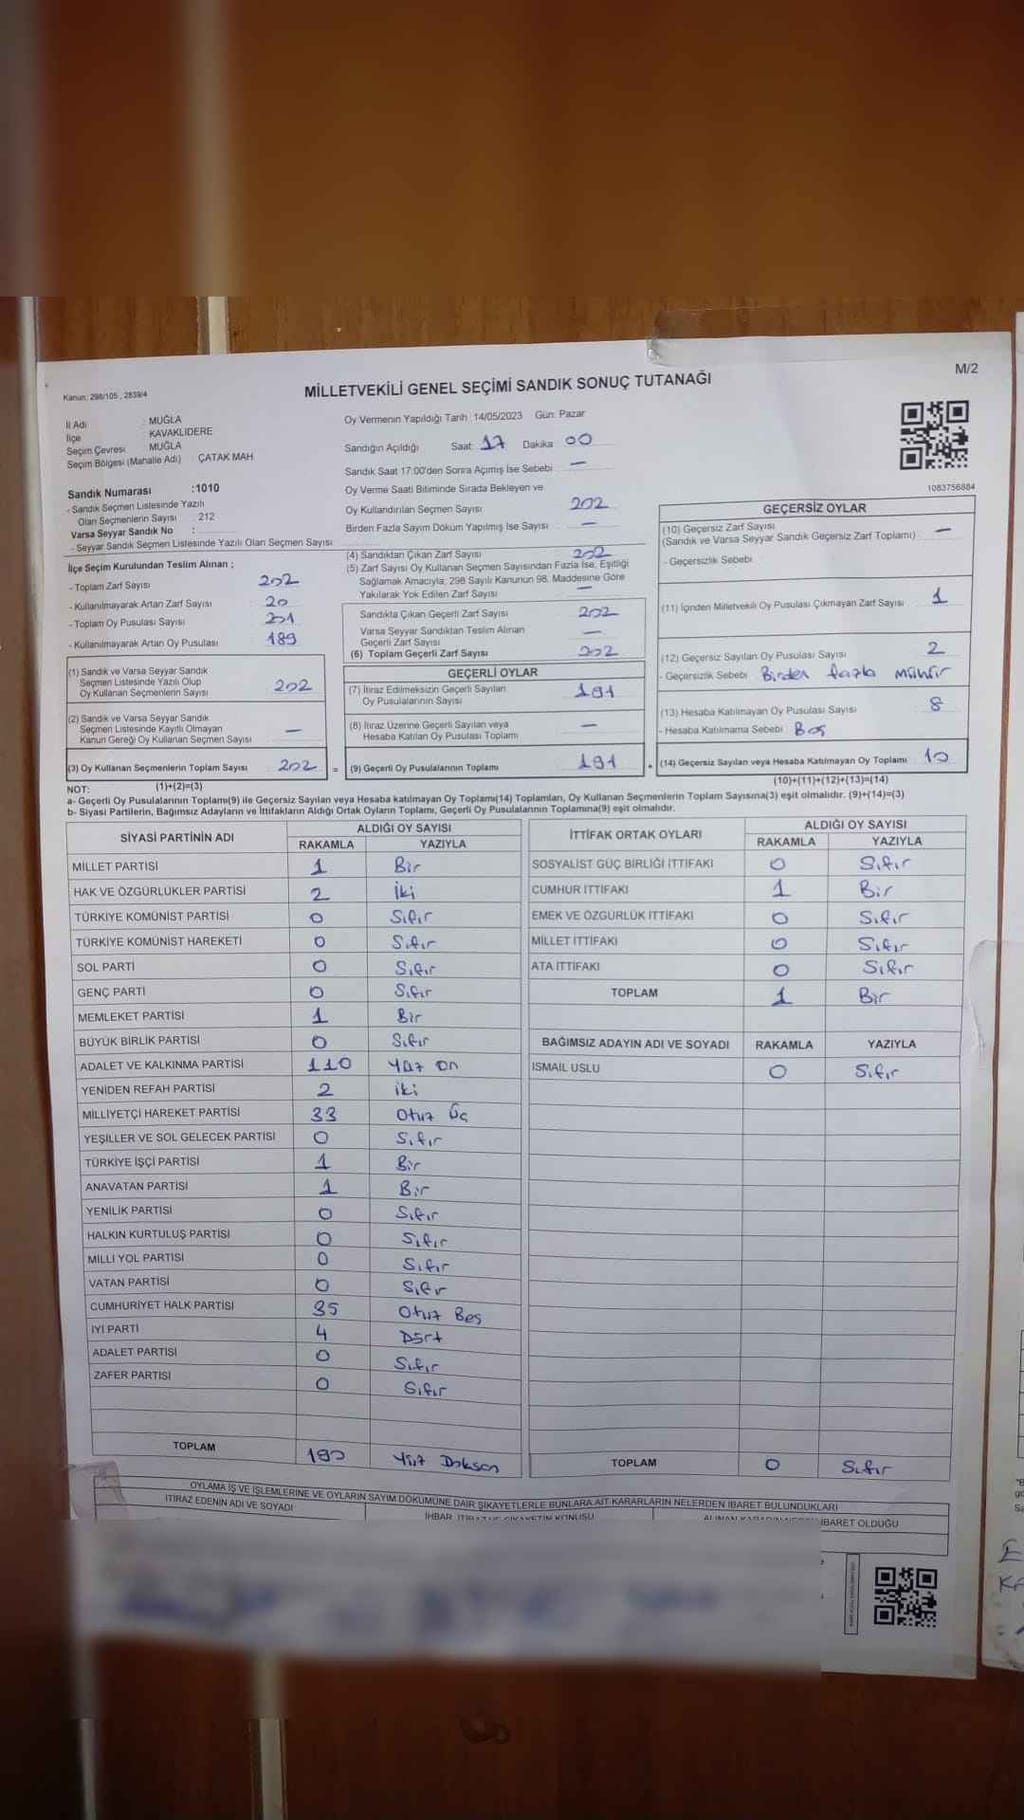 M/2
Kanun: 298/105 , 2839/4
MİLLETVEKİLİ GENEL SEÇİMİ SANDIK SONUÇ TUTANAĞI
İl Adı : MUĞLA
İlçe KAVAKLIDERE
Seçim Çevresi MUĞLA
Seçim Bölgesi (Mahalle Adı) ÇATAK MAH.
Sandık Numarası :1010
- Sandık Seçmen Listesinde Yazılı
Olan Seçmenlerin Sayısı 212
Varsa Seyyar Sandık No :
- Seyyar Sandık Seçmen Listesinde Yazılı Olan Seçmen Sayısı
İlçe Seçim Kurulundan Teslim Alınan ;
- Toplam Zarf Sayısı 202
- Kullanılmayarak Artan Zarf Sayısı 20
- Toplam Oy Pusulası Sayısı
- Kullanılmayarak Artan Oy Pusulası 189
(1) Sandık ve Varsa Seyyar Sandık
Seçmen Listesinde Yazılı Olup
Oy Kullanan Seçmenlerin Sayısı 202
(2) Sandık ve Varsa Seyyar Sandık
Seçmen Listesinde Kayıtlı Olmayan
Kanun Gereği Oy Kullanan Seçmen Sayısı —
(3) Oy Kullanan Seçmenlerin Toplam Sayısı 202 =
(1)+(2)=(3)
Oy Vermenin Yapıldığı Tarih : 14/05/2023 Gün: Pazar
Sandığın Açıldığı Saat: 17 Dakika 00
Sandık Saat 17:00'den Sonra Açılmış İse Sebebi —
Oy Verme Saati Bitiminde Sırada Bekleyen ve
Oy Kullandırılan Seçmen Sayısı 202
Birden Fazla Sayım Döküm Yapılmış İse Sayısı —
(4) Sandıktan Çıkan Zarf Sayısı 202
(5) Zarf Sayısı Oy Kullanan Seçmen Sayısından Fazla İse, Eşitliği
Sağlamak Amacıyla, 298 Sayılı Kanunun 98. Maddesine Göre
Yakılarak Yok Edilen Zarf Sayısı —
Sandıkta Çıkan Geçerli Zarf Sayısı 202
Varsa Seyyar Sandıktan Teslim Alınan
Geçerli Zarf Sayısı —
(6) Toplam Geçerli Zarf Sayısı 202
GEÇERLİ OYLAR
(7) İtiraz Edilmeksizin Geçerli Sayılan
Oy Pusulalarının Sayısı 191
(8) İtiraz Üzerine Geçerli Sayılan veya
Hesaba Katılan Oy Pusulası Toplamı —
(9) Geçerli Oy Pusulalarının Toplamı 191 +
1083756884
GEÇERSİZ OYLAR
(10) Geçersiz Zarf Sayısı —
(Sandık ve Varsa Seyyar Sandık Geçersiz Zarf Toplamı)
- Geçersizlik Sebebi
(11) İçinden Milletvekili Oy Pusulası Çıkmayan Zarf Sayısı 1
(12) Geçersiz Sayılan Oy Pusulası Sayısı 2
- Geçersizlik Sebebi Birden fazla mühür
(13) Hesaba Katılmayan Oy Pusulası Sayısı 8
- Hesaba Katılmama Sebebi Boş
(14) Geçersiz Sayılan veya Hesaba Katılmayan Oy Toplamı 10
(10)+(11)+(12)+(13)=(14)
NOT:
a- Geçerli Oy Pusulalarının Toplamı(9) ile Geçersiz Sayılan veya Hesaba katılmayan Oy Toplamı(14) Toplamları, Oy Kullanan Seçmenlerin Toplam Sayısına(3) eşit olmalıdır. (9)+(14)=(3)
b- Siyasi Partilerin, Bağımsız Adayların ve İttifakların Aldığı Ortak Oyların Toplamı, Geçerli Oy Pusulalarının Toplamına(9) eşit olmalıdır.
SİYASİ PARTİNİN ADI ALDIĞI OY SAYISI
RAKAMLA YAZIYLA
MİLLET PARTİSİ 1 Bir
HAK VE ÖZGÜRLÜKLER PARTİSİ 2 İki
TÜRKİYE KOMÜNİST PARTİSİ 0 Sıfır
TÜRKİYE KOMÜNİST HAREKETİ 0 Sıfır
SOL PARTİ 0 Sıfır
GENÇ PARTİ 0 Sıfır
MEMLEKET PARTİSİ 1 Bir
BÜYÜK BİRLİK PARTİSİ 0 Sıfır
ADALET VE KALKINMA PARTİSİ 110 Yüz on
YENİDEN REFAH PARTİSİ 2 iki
MİLLİYETÇİ HAREKET PARTİSİ 33 Otuz Üç
YEŞİLLER VE SOL GELECEK PARTİSİ 0 Sıfır
TÜRKİYE İŞÇİ PARTİSİ 1 Bir
ANAVATAN PARTİSİ 1 Bir
YENİLİK PARTİSİ 0 Sıfır
HALKIN KURTULUŞ PARTİSİ 0 Sıfır
MİLLİ YOL PARTİSİ 0 Sıfır
VATAN PARTİSİ 0 Sıfır
CUMHURİYET HALK PARTİSİ 35 Otuz Beş
İYİ PARTİ 4 Dört
ADALET PARTİSİ 0 Sıfır
ZAFER PARTİSİ 0 Sıfır
TOPLAM 190 Yüz Doksan
İTTİFAK ORTAK OYLARI ALDIĞI OY SAYISI
RAKAMLA YAZIYLA
SOSYALİST GÜÇ BİRLİĞİ İTTİFAKI 0 Sıfır
CUMHUR İTTİFAKI 1 Bir
EMEK VE ÖZGÜRLÜK İTTİFAKI 0 Sıfır
MİLLET İTTİFAKI 0 Sıfır
ATA İTTİFAKI 0 Sıfır
TOPLAM 1 Bir
BAĞIMSIZ ADAYIN ADI VE SOYADI RAKAMLA YAZIYLA
İSMAİL USLU 0 Sıfır
TOPLAM 0 Sıfır
OYLAMA İŞ VE İŞLEMLERİNE VE OYLARIN SAYIM DÖKÜMÜNE DAİR ŞİKAYETLERLE BUNLARA AİT KARARLARIN NELERDEN İBARET BULUNDUKLARI
İTİRAZ EDENİN ADI VE SOYADI
İHBAR, İTİRAZ VE ŞİKAYETİN KONUSU
İBARET OLDUĞU